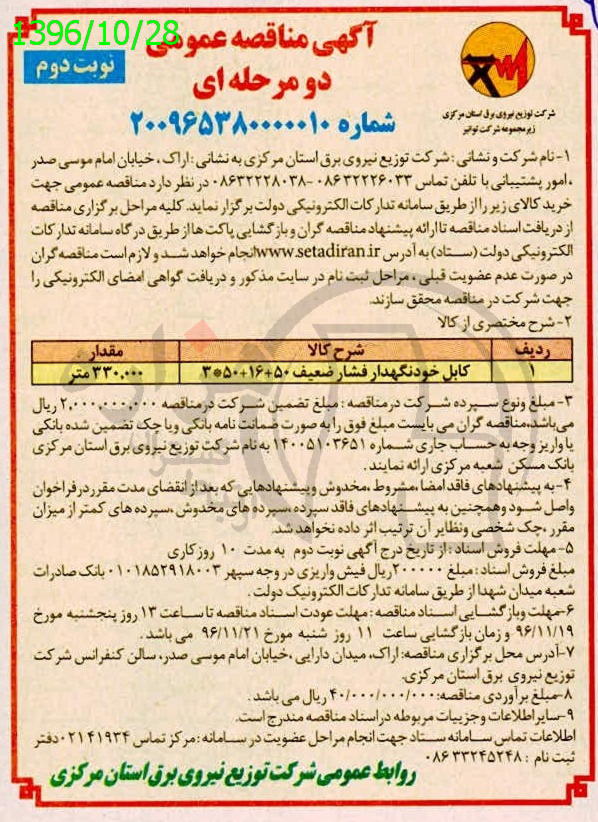 1396/10/28
آگهی مناقصه عمومی
دو مرحله ای
نوبت دوم
شماره ۲۰۰۹۶۵۳۸۰۰۰۰۰۱۰
شرکت توزیع نیروی برق استان مرکزی
زیرمجموعه شرکت توانیر
۱- نام شرکت و نشانی : شرکت توزیع نیروی برق استان مرکزی به نشانی : اراک ، خیابان امام موسی صدر
، امور پشتیبانی با تلفن تماس ۰۸۶۳۲۲۲۶۰۳۳-۰۸۶۳۲۲۲۸۰۳۸ در نظر دارد مناقصه عمومی جهت
خرید کالای زیر را از طریق سامانه تدارکات الکترونیکی دولت برگزار نماید. کلیه مراحل برگزاری مناقصه
از دریافت اسناد مناقصه تا ارائه پیشنهاد مناقصه گران و بازگشایی پاکت ها از طریق درگاه سامانه تدارکات
الکترونیکی دولت (ستاد) به آدرس www.setadiran.ir انجام خواهد شد و لازم است مناقصه گران
در صورت عدم عضویت قبلی ، مراحل ثبت نام در سایت مذکور و دریافت گواهی امضای الکترونیکی را
جهت شرکت در مناقصه محقق سازند.
۲- شرح مختصری از کالا
ردیف شرح کالا مقدار
۱ کابل خودنگهدار فشار ضعیف ۵۰+۱۶+۵۰*۳ ۳۳۰,۰۰۰ متر
۳- مبلغ ونوع سپرده شرکت درمناقصه : مبلغ تضمین شرکت درمناقصه ۲,۰۰۰,۰۰۰,۰۰۰ ریال
می باشد،مناقصه گران می بایست مبلغ فوق را به صورت ضمانت نامه بانکی ویا چک تضمین شده بانکی
یا واریز وجه به حساب جاری شماره ۱۴۰۰۵۱۰۳۶۵۱ به نام شرکت توزیع نیروی برق استان مرکزی
بانک مسکن شعبه مرکزی ارائه نمایند .
۴- به پیشنهادهای فاقد امضا ،مشروط ،مخدوش وپیشنهادهایی که بعد از انقضای مدت مقرر درفراخوان
واصل شود وهمچنین به پیشنهادهای فاقد سپرده ،سپرده های مخدوش ،سپرده های کمتر از میزان
مقرر ،چک شخصی ونظایر آن ترتیب اثر داده نخواهد شد.
۵- مهلت فروش اسناد : از تاریخ درج آگهی نوبت دوم به مدت ۱۰ روز کاری
مبلغ فروش اسناد : مبلغ ۲۰۰۰۰۰ ریال فیش واریزی در وجه سپهر ۰۱۰۱۸۵۲۹۱۸۰۰۳ بانک صادرات
شعبه میدان شهدا از طریق سامانه تدارکات الکترونیک دولت .
۶-مهلت وبازگشایی اسناد مناقصه : مهلت عودت اسناد مناقصه تا ساعت ۱۳ روز پنجشنبه مورخ
۹۶/۱۱/۱۹ و زمان بازگشایی ساعت ۱۱ روز شنبه مورخ ۹۶/۱۱/۲۱ می باشد .
۷-آدرس محل برگزاری مناقصه: اراک، میدان دارایی ،خیابان امام موسی صدر، سالن کنفرانس شرکت
توزیع نیروی برق استان مرکزی.
۸-مبلغ برآوردی مناقصه: ۴۰/۰۰۰/۰۰۰/۰۰۰ ریال می باشد .
۹-سایر اطلاعات وجزییات مربوطه در اسناد مناقصه مندرج است.
اطلاعات تماس سامانه ستاد جهت انجام مراحل عضویت در سامانه : مرکز تماس ۰۲۱۴۱۹۳۴ دفتر
ثبت نام : ۰۸۶۳۳۲۴۵۲۴۸
روابط عمومی شرکت توزیع نیروی برق استان مرکزی